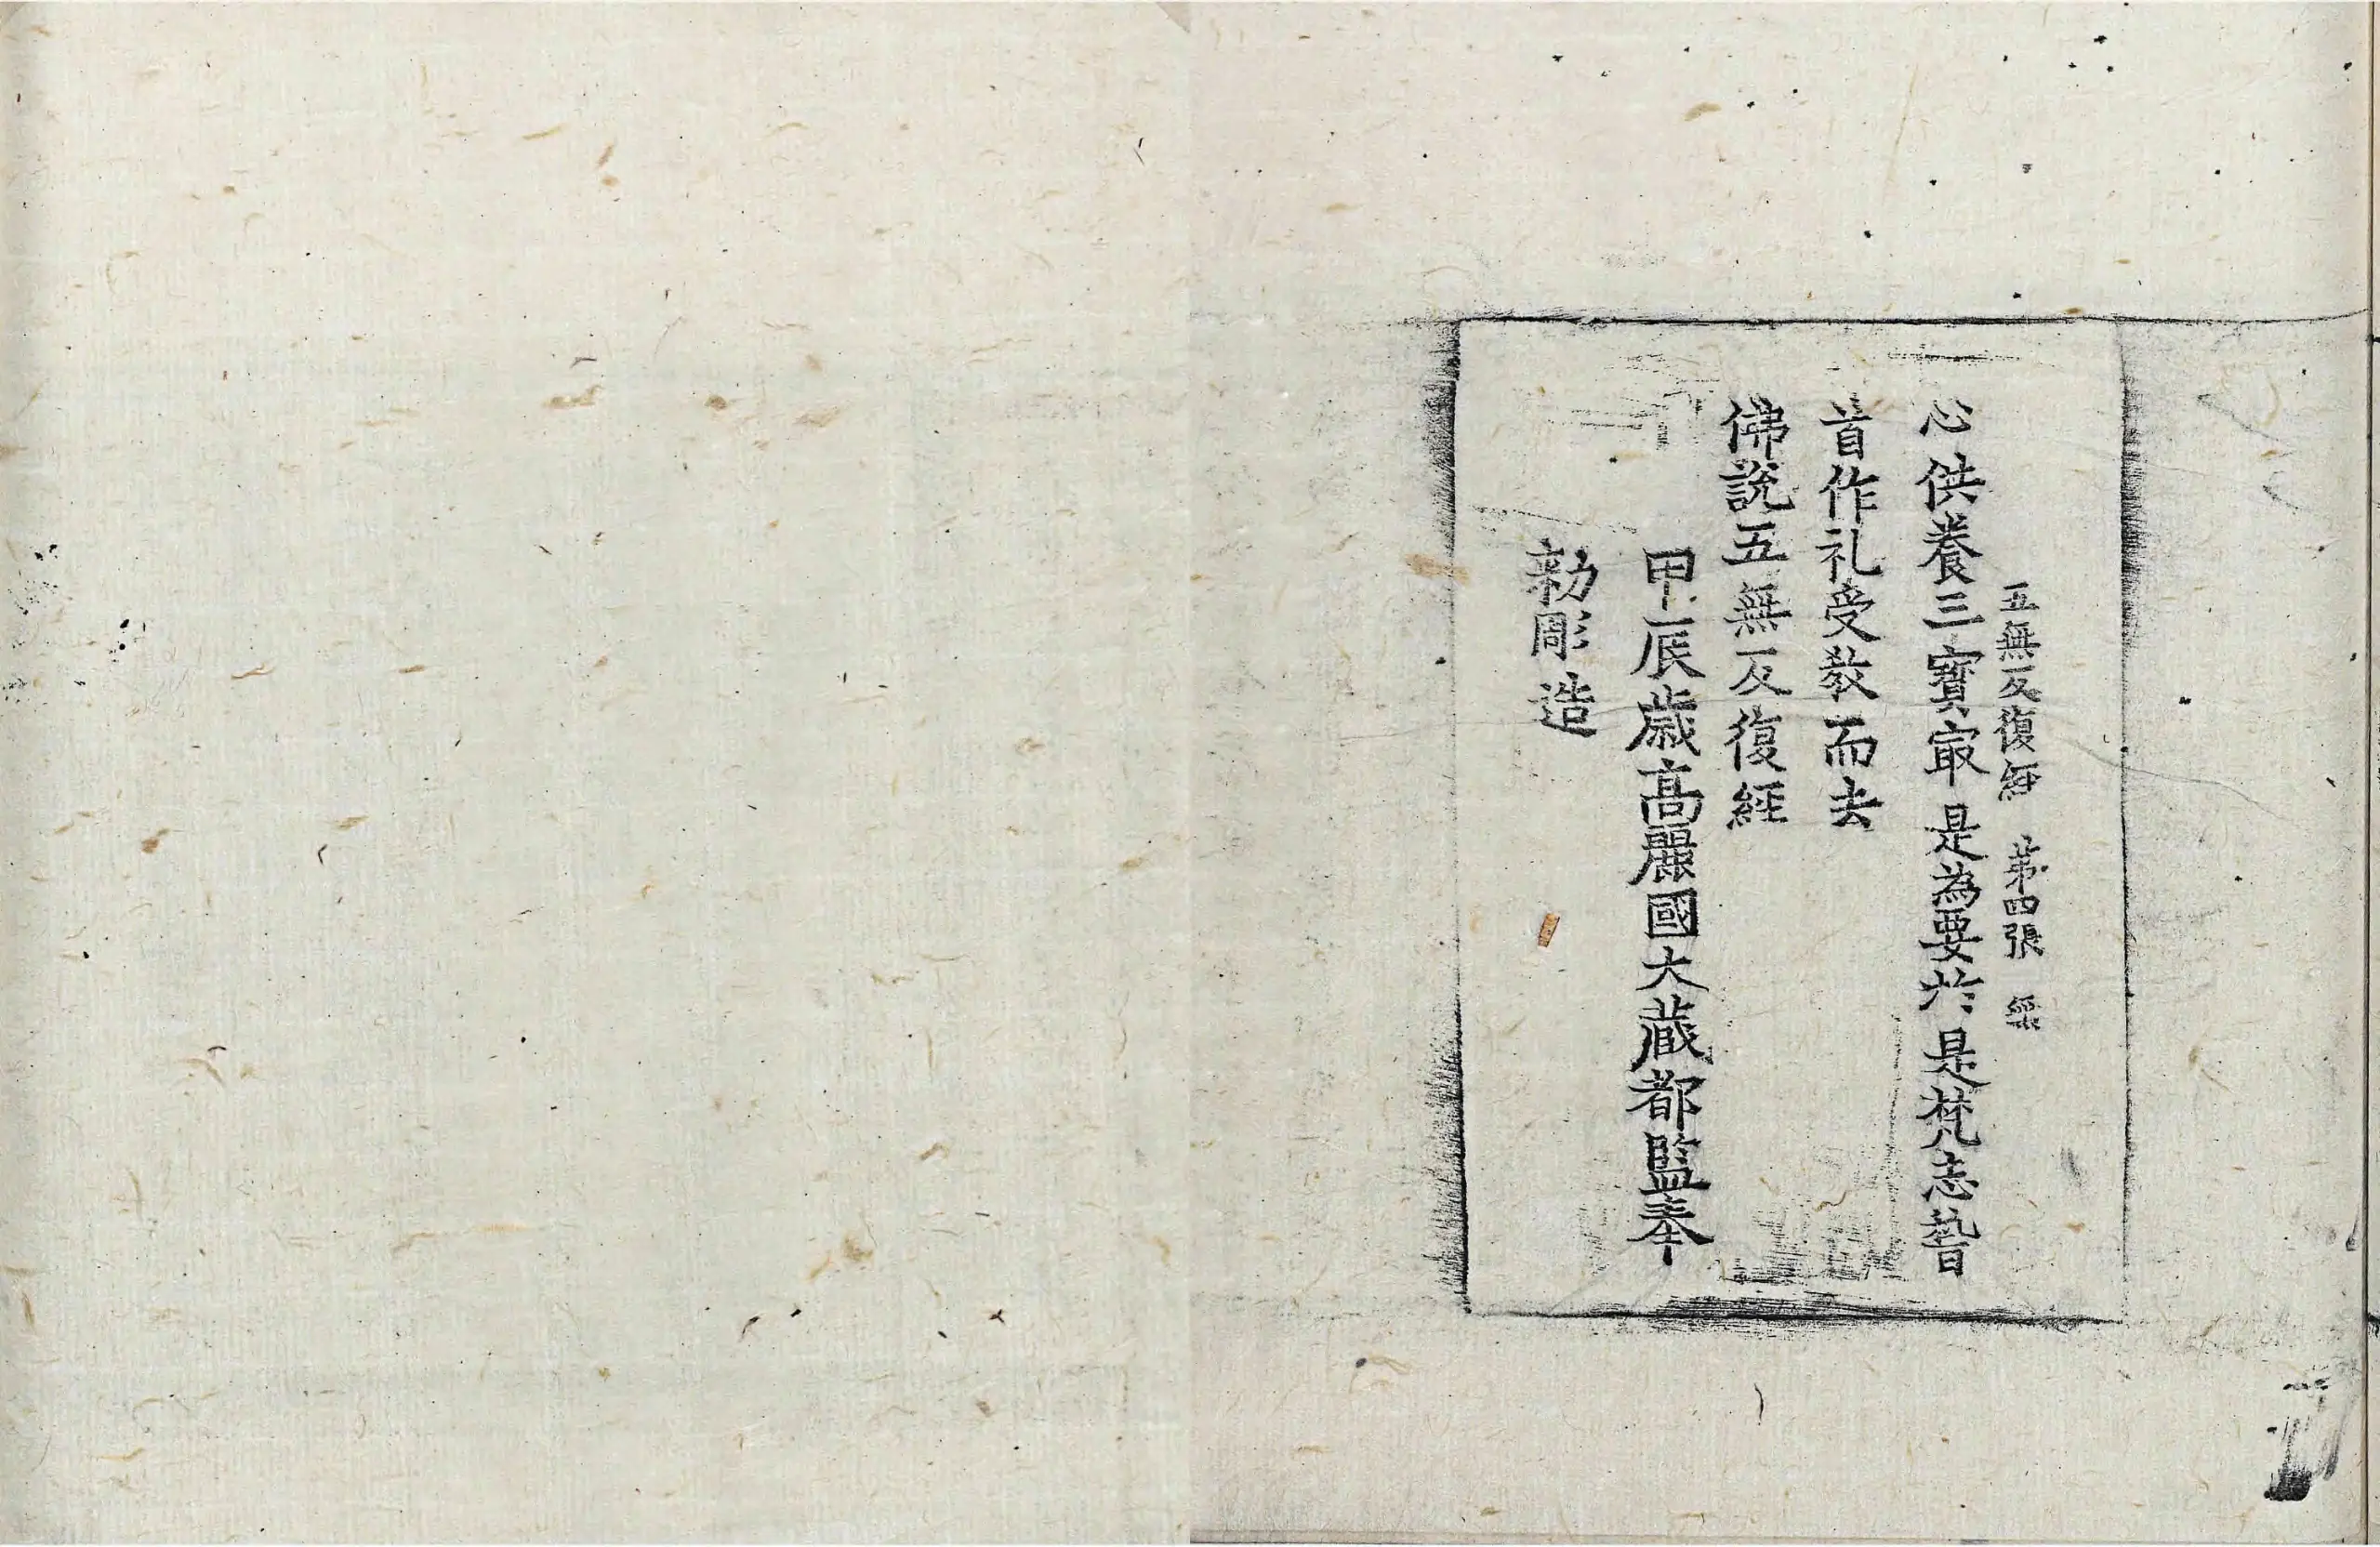 五無反復經 第四張 
心供養三寶冣是為要於是梵志𥡴
首作礼受教而去
佛說五無反復經
甲辰歲高麗國大藏都監奉
勑彫造